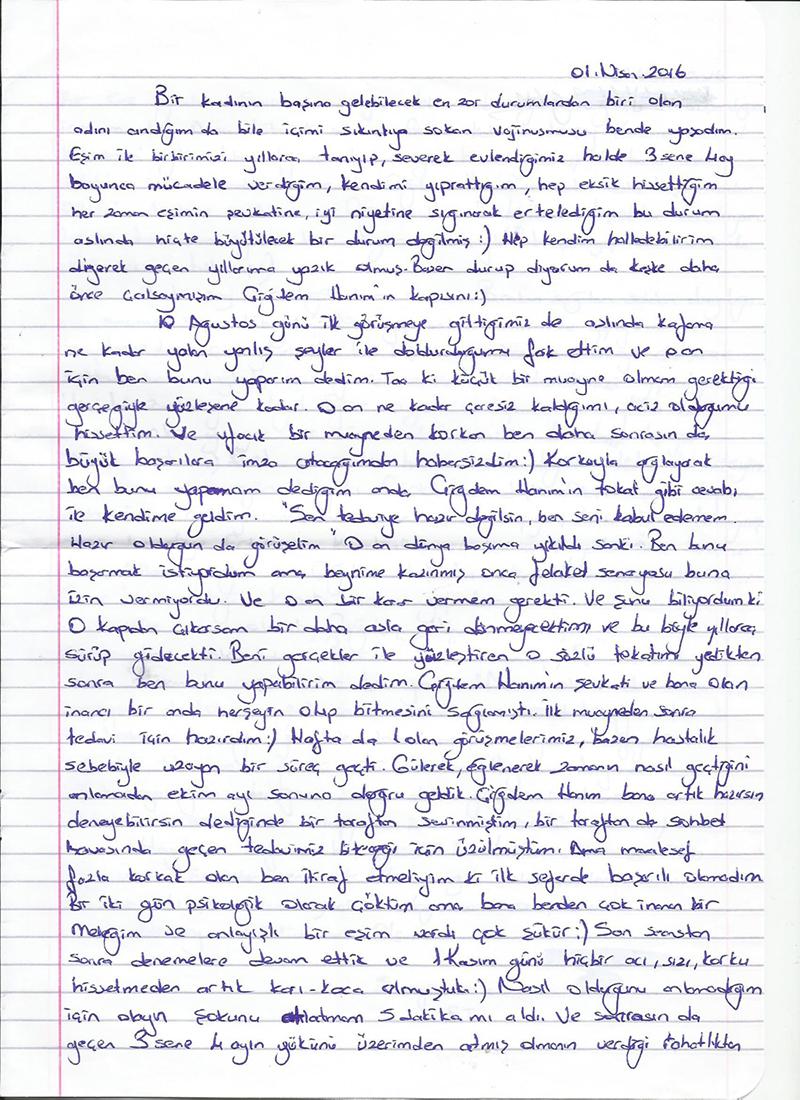 01.Nisan.2016
Bir kadının başına gelebilecek en zor durumlardan biri olan
adını andığım da bile içimi sıkıntıya sokan vajinusmusu bende yaşadım.
Eşim ile birbirimizi yıllarca tanıyıp, severek evlendiğimiz halde 3 sene 4 ay
boyunca mücadele verdiğim, kendimi yıprattığım, hep eksik hissettiğim
her zaman eşimin şevkatine, iyi niyetine sığınarak ertelediğim bu durum
aslında hiçte büyütülecek bir durum değilmiş :) Hep kendim halledebilirim
diyerek geçen yıllarıma yazık olmuş. Bazen durup diyorum da keşke daha
önce çalsaymışım Çiğdem Hanım'ın kapısını :)
10 Ağustos günü ilk görüşmeye gittiğimiz de aslında kafama
ne kadar yalan yanlış şeyler ile doldurduğumu fark ettim ve o an
için ben bunu yaparım dedim. Taa ki küçük bir muayne olmam gerektiği
gerçeğiyle yüzleşene kadar. O an ne kadar çaresiz kaldığımı, aciz olduğumu
hissettim. Ve ufacık bir muayneden korkan ben daha sonrasın da
büyük başarılara imza atacağımdan habersizdim :) Korkuyla ağlayarak
ben bunu yapamam dediğim anda Çiğdem Hanım'ın tokat gibi cevabı
ile kendime geldim. "Sen tedaviye hazır değilsin, ben seni kabul edemem.
Hazır olduğun da görüşelim" O an dünya başıma yıkıldı sanki. Ben bunu
başarmak istiyordum ama beynime kazınmış onca felaket senaryosu buna
izin vermiyordu. Ve o an bir karar vermem gerekti. Ve şunu biliyordum ki
o kapıdan çıkarsam bir daha asla geri dönmeyecektim ve bu böyle yıllarca
sürüp gidecekti. Beni gerçekler ile yüzleştiren o sözlü tokatımı yedikten
sonra ben bunu yapabilirim dedim. Çiğdem Hanım'ın şevkati ve bana olan
inancı bir anda herşeyin olup bitmesini sağlamıştı. İlk muayneden sonra
tedavi için hazırdım :) Hafta da 1 olan görüşmelerimiz, bazen hastalık
sebebiyle uzayan bir süreç geçti. Gülerek, eğlenerek zamanın nasıl geçtiğini
anlamadan ekim ayı sonuna doğru geldik. Çiğdem Hanım bana artık hazırsın
deneyebilirsin dediğinde bir taraftan sevinmiştim, bir taraftan da sohbet
havasında geçen tedavimiz biteceği için üzülmüştüm. Ama maalesef
fazla korkak olan ben itiraf etmeliyim ki ilk seferde başarılı olamadım
Bir iki gün psikolojik olarak çöktüm ama bana benden çok inanan bir
meleğim ve anlayışlı bir eşim vardı çok şükür :) Son seanstan
sonra denemelere devam ettik ve 1 Kasım günü hiçbir acı, sızı, korku
hissetmeden artık karı-koca olmuştuk :) Nasıl olduğunu anlamadığım
için olayın şokunu atlatmam 5 dakika mı aldı. Ve sonrasın da
geçen 3 sene 4 ayın yükünü üzerimden atmış olmanın verdiği rahatlıktan